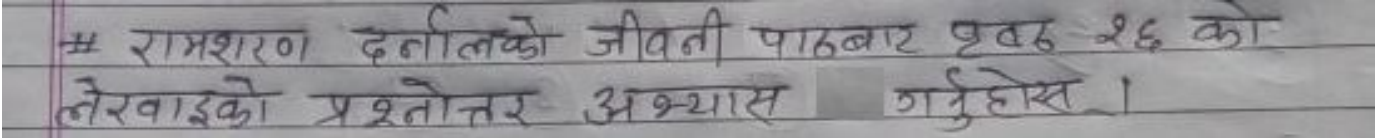 # रामशरण दर्नालको जीवनी पाठबाट पृष्ठ २६ को
लेखाइको प्रश्नोत्तर अभ्यास गर्नुहोस ।